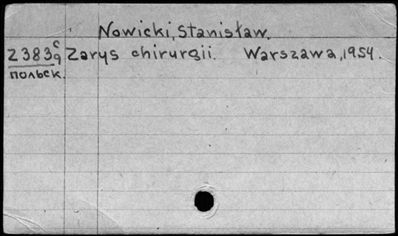 Nowicki, Stanisław.
Z383 c/9 Zarys chirurgii. Warszawa, 1954.
польск.